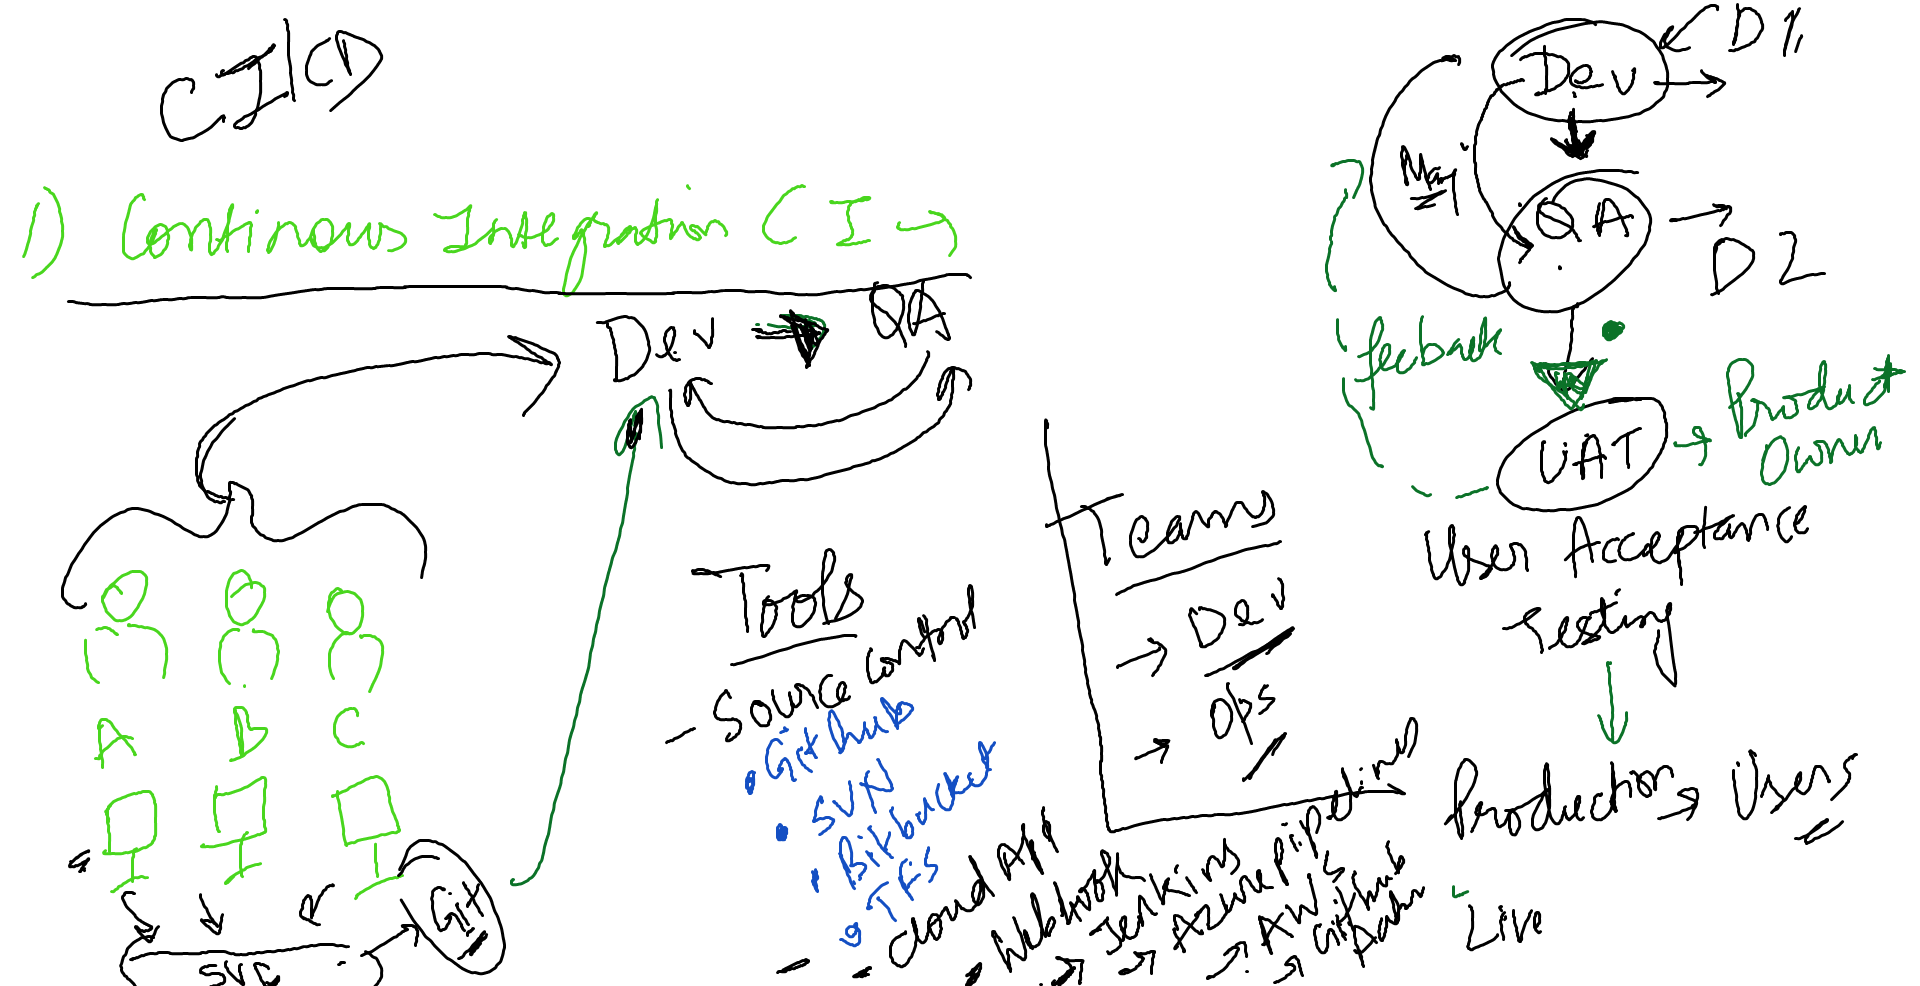 CI/CD
1) Continous Integration (CI →
Dev → QA
A B C
Git
Tools
- Source control
• Github
• SVN
• Bitbucket
• TFS
- Cloud API
• Webhook
→ Jenkins
→ Azure pipelines
→ AWS
→ Github
Teams
→ Dev
→ Ops
Dev
D1
May
QA
D2
feeback
UAT → Product
Owner
User Acceptance
Testing
Production → Users
Live